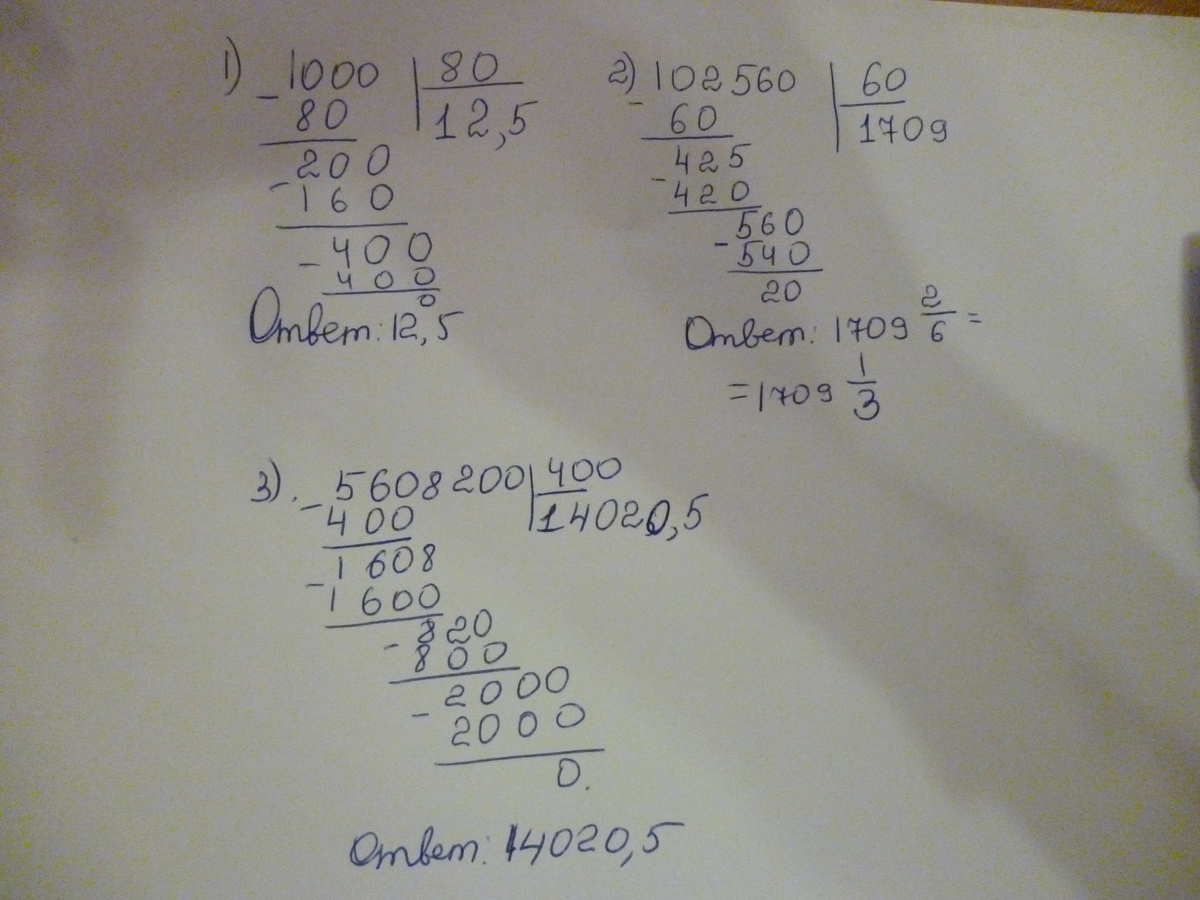 1) 1000 | 80
- 80 | 12,5
200
- 160
- 400
400
0
Ответ: 12,5
2) 102560 | 60
- 60 | 1709
425
- 420
560
- 540
20
Ответ: 1709 2/6 =
= 1709 1/3
3). 5608200 | 400
- 400 | 14020,5
1608
- 1600
- 820
800
2000
- 2000
0.
Ответ: 14020,5